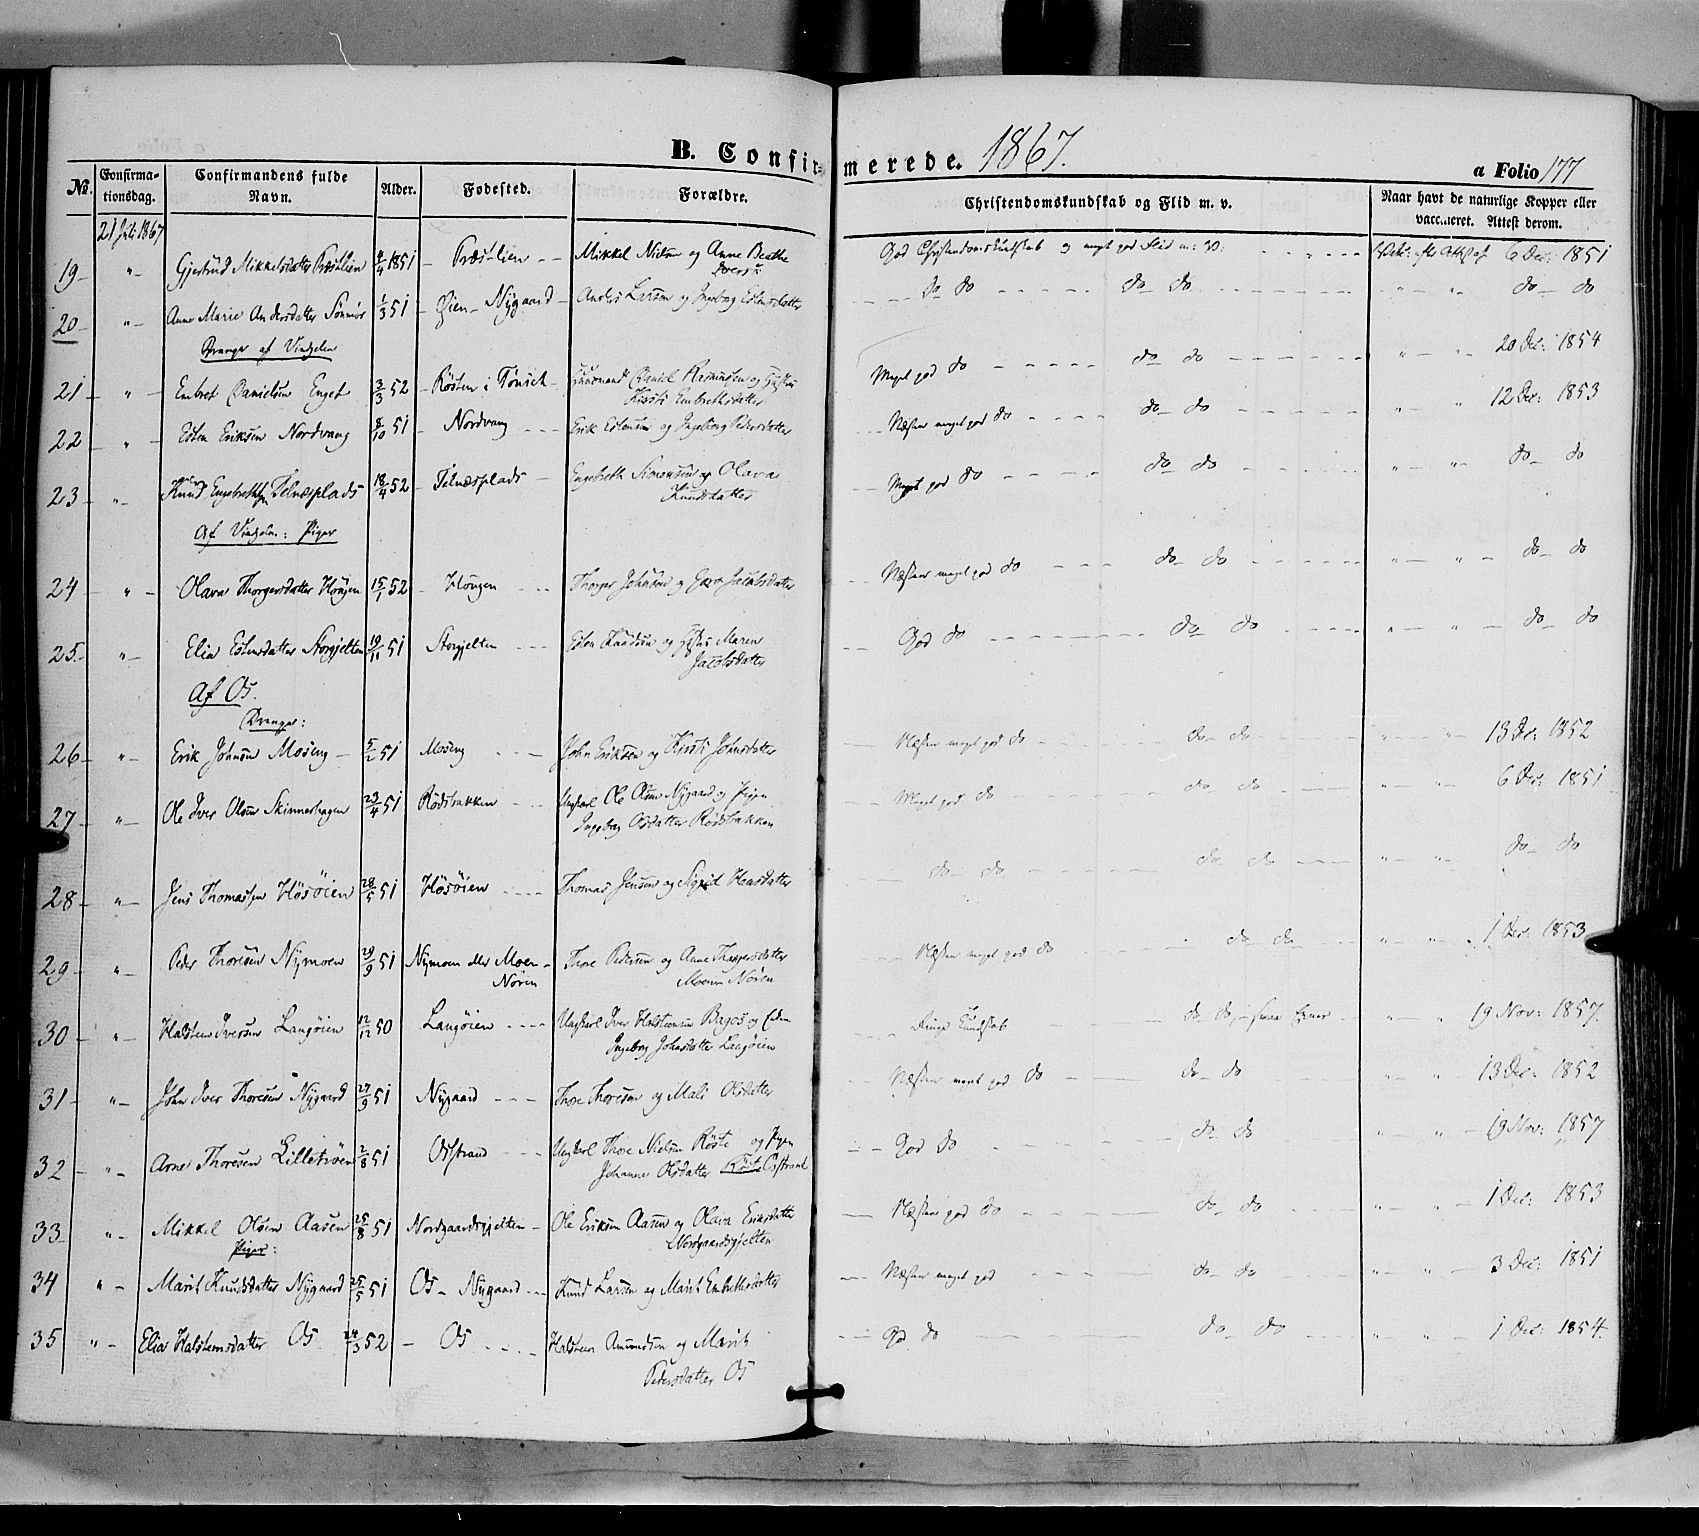 B. Confirmerede. 1867. a Folio 177
No. Confirmationsdag. Confirmandens fulde Navn. Alder. Fødested. Forældre. Christendomskundskab og Flid m. v. Naar havt de naturlige Kopper eller vaccineret. Attest derom.
21 Juli 1867
19 " Gjertrud Mikkelsdatter Præstlien 4/4 1851 Præstlien Mikkel Nielsen og Anne Beathe Iversd. God Christendomskundskab og meget god Flid 6 Dec: 1851
20 " Anne Marie Andersdatter Sönmör 1/3 51 Øien Nygaard Anders Larsen og Ingeborg Estensdatter do do do do " " do do
Drenge af Vingelen
21 " Embret Danielsen Enget 3/3 52 Røsten i Tønset Huusmand Daniel Rasmussen og Hustru Kirsti Embrethsdatter Meget god do do do " " 20 Dec: 1854
22 " Esten Eriksen Nordvang 8/10 51 Nordvang Erik Estensen og Ingeborg Pedersdatter Næsten meget god do do do " " 12 Dec: 1853
23 " Knud Engebrethsen Telnæsplads 18/4 52 Telnæsplads Engebreth Simonsen og Olava Knudsdatter Meget god do do do " " do do
Af Vingelen: Piger
24 " Olava Thorgersdatter Hougen 15/1 52 Hougen Thorger Johnsen og Jacobsdatter Næsten meget god do do do " " do do
25 " Elia Estensdatter Storgjelten 19/11 51 Storgjelten Esten Knudsen og Hustru Maren Jacobsdatter God do do do " " do do
Af Os.
Drenge:
26 " Erik Johnsen Moseng 5/2 51 Moseng John Eriksen og Kirsti Johnsdatter Næsten meget god do do do " " 13 Dec: 1852
27 " Ole Iver Olsen Skinnerhagen 23/4 51 Rödsbakken Ungkarl Ole Olsen Nygaard og Pigen Ingeborg Olsdatter Rödsbakken Meget god do do do " " 6 Dec: 1851
28 " Jens Thomassen Hösöien 28/5 51 Hösöien Thomas Jensen og Sigrid Hansdatter do do do do " " do do
29 " Peder Thoresen Nymoen 29/9 51 Nymoen eller Moen Nören Thore Pedersen og Anne Thoresdatter Moen Nören Næsten meget god do do do " " 1 Dec: 1853
30 " Halsten Iversen Langöien 12/12 50 Langöien Ungkarl Iver Halstensen Bagos og Enken Ingeborg Johnsdatter Langöien Ringe Kundskab do do, svage Evner " " 19 Nov: 1857.
31 " John Iver Thoresen Nygaard 27/9 51 Nygaard Thore Thoresen og Mali Olsdatter Næsten meget god do do do " " 13 Dec: 1852
32 " Arne Thoresen Lilletröen 2/8 51 Osstrand Ungkarl Thore Nielsen Röste og Pigen Johanne Olsdatter Osstrand God do do do " " 19 Nov: 1857
33 " Mikkel Olsen Aasen 25/8 51 Nordgaardsgjelten Ole Eriksen Aasen og Olava Eriksdatter Nordgaardsgjelten Næsten god do do do " " 1 Dec: 1853
Piger:
34 " Marit Knudsdatter Nygaard 25/5 51 Os Nygaard Knud Larsen og Marit Embrethsdatter Næsten meget god do do " " 3 Dec: 1851
35 " Elia Halstensdatter Os 24/3 52 Os Halsten Amundsen og Marit Pedersdatter Os God do do do " " 1 Dec: 1854